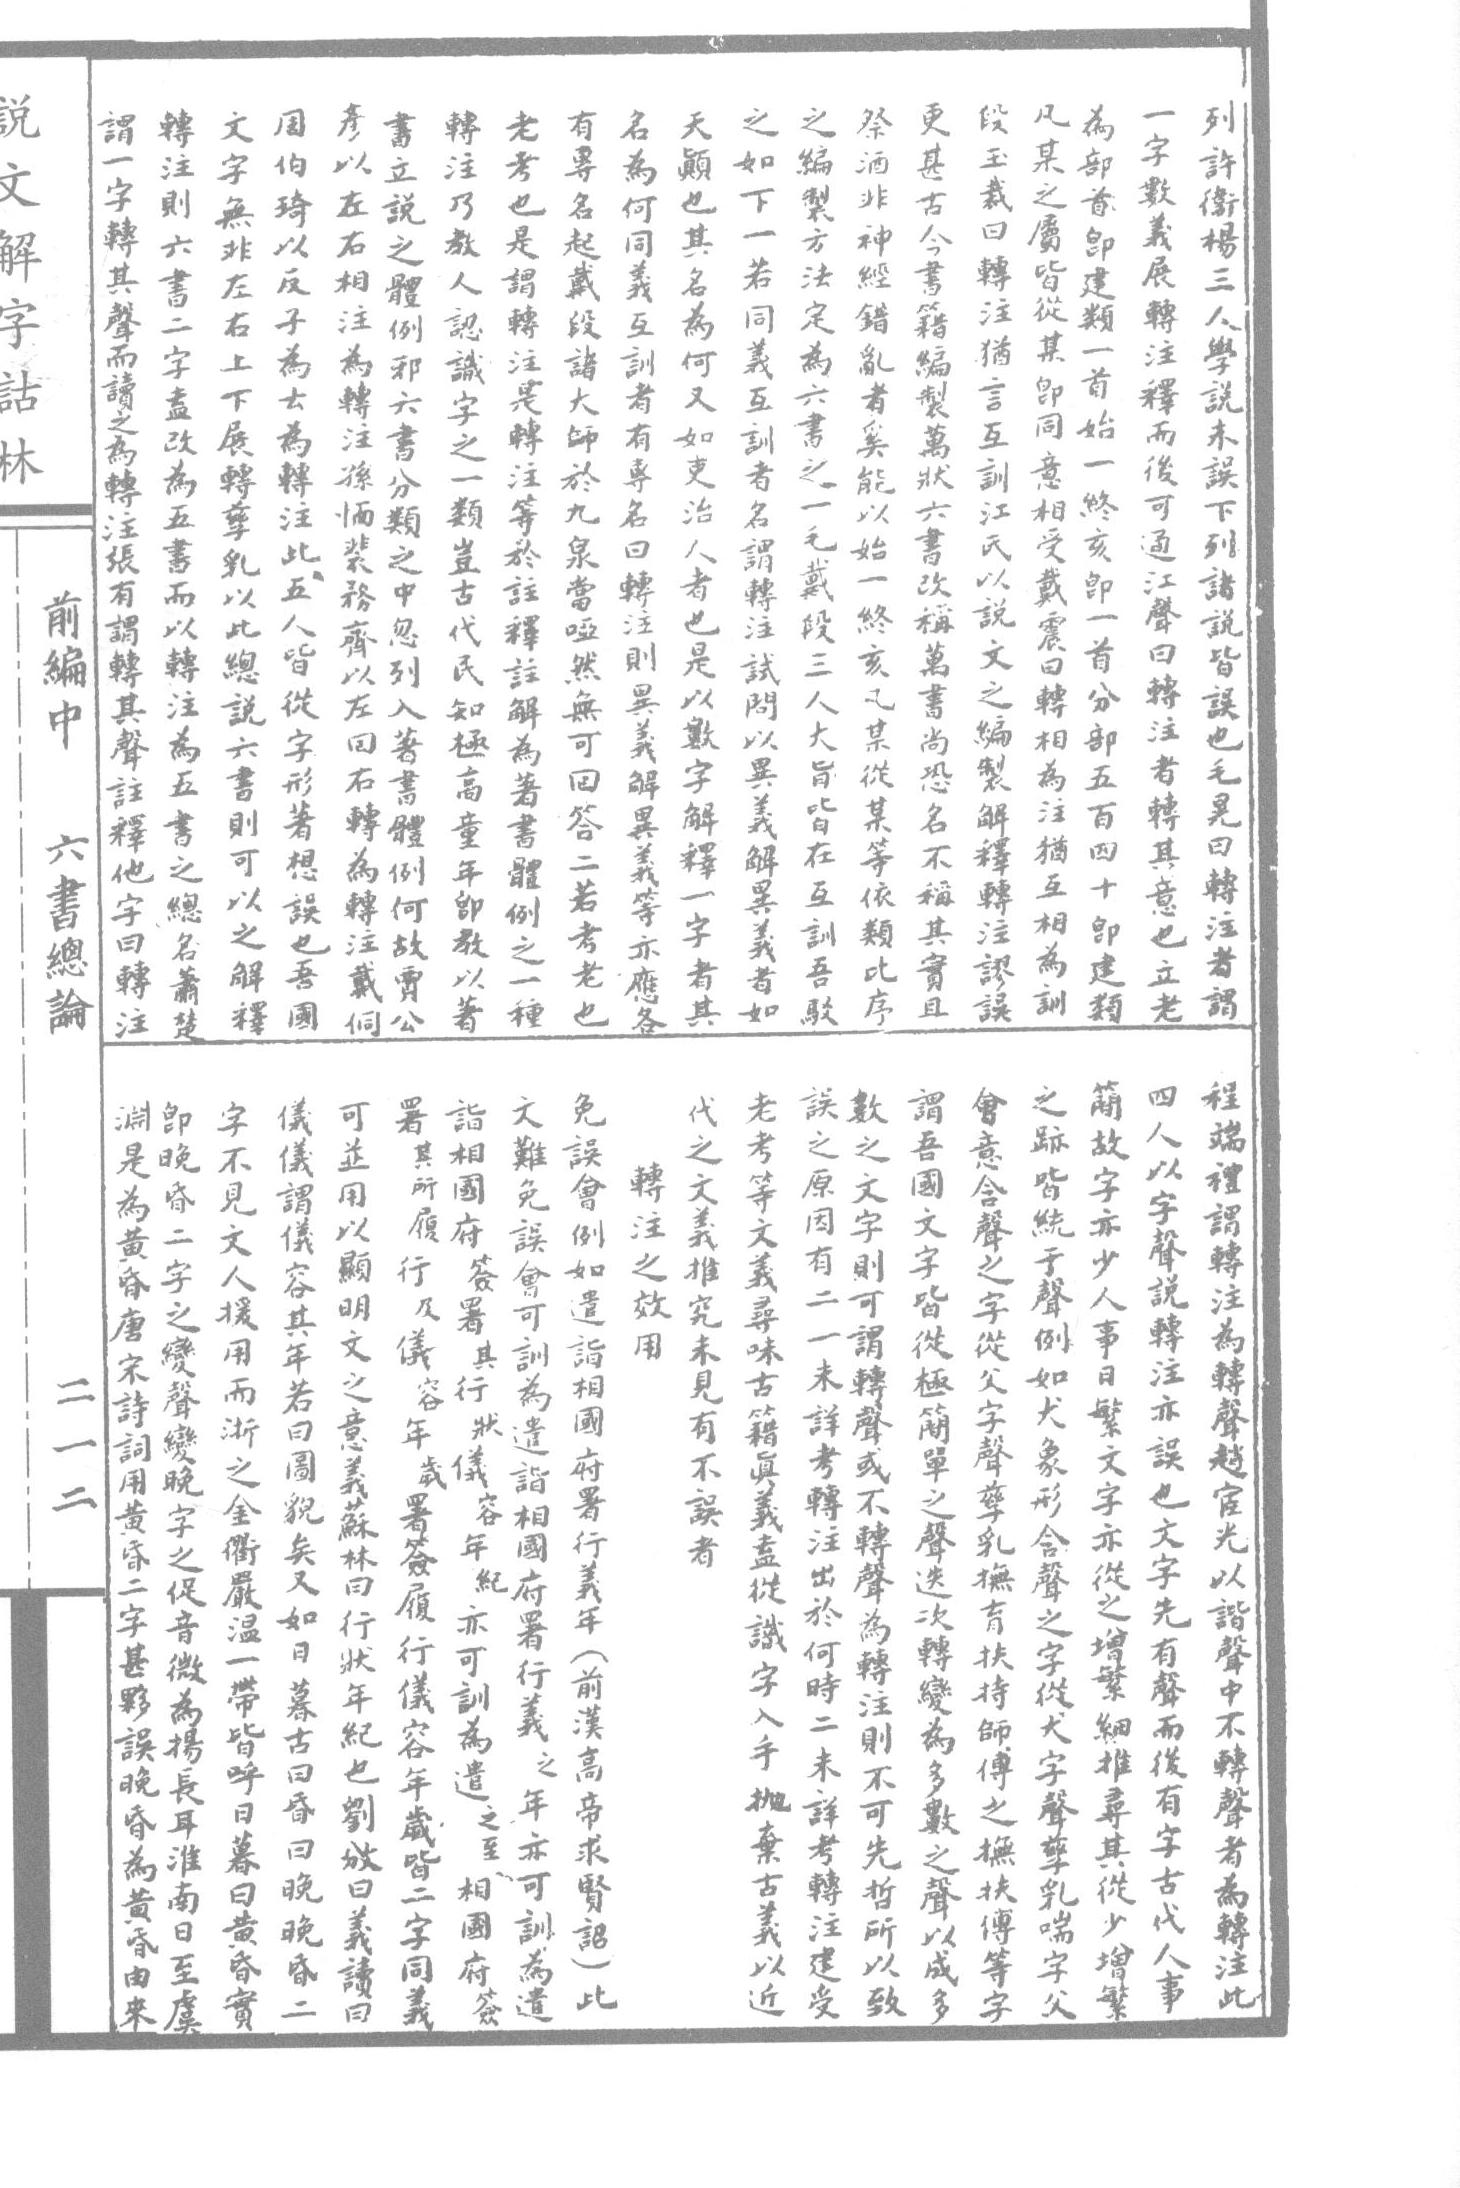 列許衛楊三人學說未誤下列諸說皆誤也毛晃曰轉注者謂
一字數義展轉注釋而後可通江聲曰轉注者轉其意也立老
為部首卽建類一首始一終亥卽一首分部五百四十卽建類
凡某之屬皆從某卽同意相受戴震曰轉相為注猶互相為訓
段玉裁曰轉注猶言互訓江氏以說文之編製解釋轉注謬誤
更甚古今書籍編製萬狀六書改稱萬書尚恐名不稱其實且
祭酒非神經錯亂者奚能以始一終亥凡某從某等依類比序
之編製方法定為六書之一毛戴段三人大旨皆在互訓吾駁
之如下一若同義互訓者名謂轉注試問以異義解異義者如
天顚也其名為何又如吏治人者也是以數字解釋一字者其
名為何同義互訓者有專名曰轉注則異義解異義等亦應各
有專名起戴段諸大師於九泉當啞然無可回答二若考老也
老考也是謂轉注是轉注等於註釋註解為著書體例之一種
轉注乃教人認識字之一類豈古代民知極高童年卽教以著
書立說之體例邪六書分類之中忽列入著書體例何故賈公
彥以左右相注為轉注孫愐裴務齊以左回右轉為轉注戴侗
周伯琦以反子為𠫓為轉注此五人皆從字形著想誤也吾國
文字無非左右上下展轉孳乳以此總說六書則可以之解釋
轉注則六書二字盍改為五書而以轉注為五書之總名蕭楚
謂一字轉其聲而讀之為轉注張有謂轉其聲註釋他字曰轉注
程端禮謂轉注為轉聲趙宧光以諧聲中不轉聲者為轉注此
四人以字聲說轉注亦誤也文字先有聲而後有字古代人事
簡故字亦少人事日繁文字亦從之增繁細推尋其從少增繁
之跡皆統于聲例如犬象形含聲之字從犬字聲孳乳喘字父
會意含聲之字從父字聲孳乳撫育扶持師傅之撫扶傅等字
謂吾國文字皆從極簡單之聲迭次轉變為多數之聲以成多
數之文字則可謂轉聲或不轉聲為轉注則不可先哲所以致
誤之原因有二一未詳考轉注出於何時二未詳考轉注建受
老考等文義尋味古籍眞義盍從識字入手拋棄古義以近
代之文義推究未見有不誤者
轉注之效用
免誤會例如遣詣相國府署行義年(前漢高帝求賢詔)此
文難免誤會可訓為遣詣相國府署行義之年亦可訓為遣
詣相國府簽署其行狀儀容年紀亦可訓為遣之至相國府簽
署其所履行及儀容年歲署簽履行儀容年歲皆二字同義
可並用以顯明文之意義蘇林曰行狀年紀也劉攽曰義讀曰
儀儀謂儀容其年若曰圖貌矣又如日暮古曰昏曰晚晚昏二
字不見文人援用而浙之金衢嚴温一帶皆呼日暮曰黃昏實
卽晚昏二字之變聲變晚字之促音微為揚長耳淮南日至虞
淵是為黃昏唐宋詩詞用黃昏二字甚夥誤晚昏為黃昏由來
說文解字詁林
前編中 六書總論
二一二